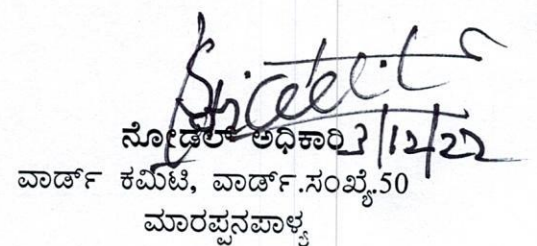 ನೋಡಲ್ ಅಧಿಕಾರಿ 3/12/22
ವಾರ್ಡ್ ಕಮಿಟಿ, ವಾರ್ಡ್.ಸಂಖ್ಯೆ.50
ಮಾರಪ್ಪನಪಾಳ್ಯ